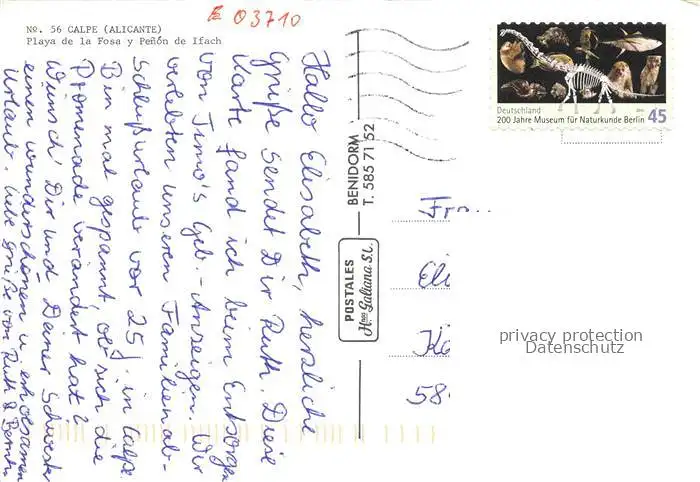 E 03710
No. 56 CALPE (ALICANTE)
Playa de la Fosa y Peñón de Ifach
Hallo Elisabeth, herzliche
Grüße sendet Dir Ruth. Diese
Karte fand ich beim Entsorgen
von Timo's Geb.-Anzeigen. Wir
verlebten unseren Familien ab-
schlußurlaub vor 25 J. in Calpe.
Bin mal gespannt, ob sich die
Promenade verändert hat?
Wünsch' Dir und Deiner Schwester
einen wunderschönen u. erholsamen
Urlaub. Liebe Grüße von Ruth &
BENIDORM -
T. 585 71 52
POSTALES
Hnos Galiana S.L.
Deutschland
200 Jahre Museum für Naturkunde Berlin 45
Fra
Eli
Ka
58
privacy protection
Datenschutz